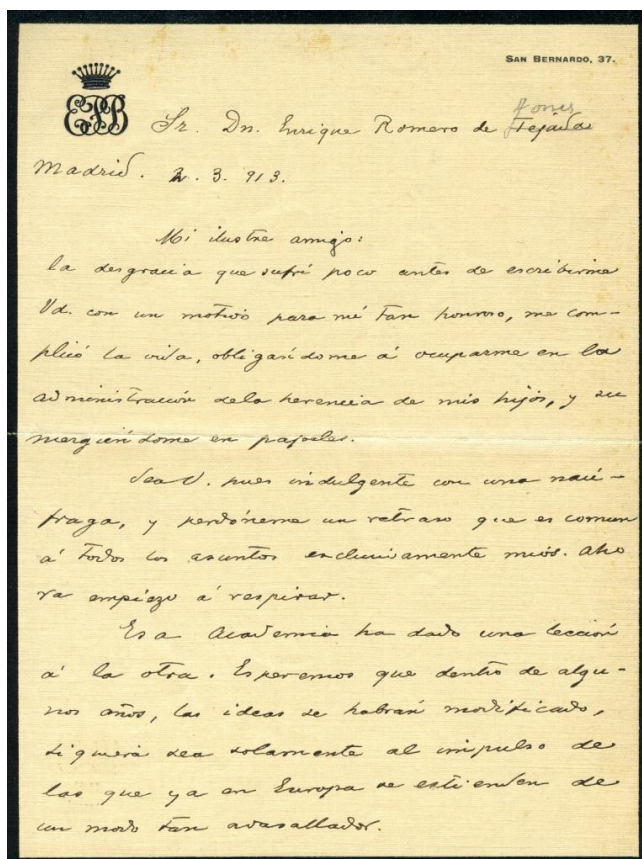 SAN BERNARDO, 37.
EPB
Torres
Sr. Dn. Enrique Romero de Tejada
Madrid. 2. 3. 913.
Mi ilustre amigo:
la desgracia que sufrí poco antes de escribirme
Vd. con un motivo para mí tan honroso, me com-
plicó la vida, obligándome á ocuparme en la
administración de la herencia de mis hijos, y su
mergiéndome en papeles.
Sea V. pues indulgente con una náu-
fraga, y perdóneme un retraso que es comun
á todos los asuntos exclusivamente mios. Aho
ra empiezo á respirar.
Esa Academia ha dado una lección
á la otra. Esperemos que dentro de algu-
nos años, las ideas se habrán modificado,
siquiera sea solamente al impulso de
las que ya en Europa se estienden de
un modo tan avasallador.